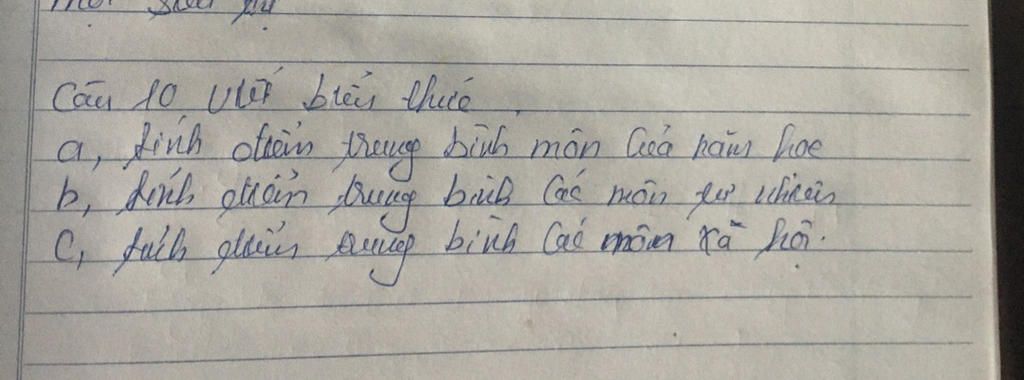 Câu 10 Viết biểu thức
a, tính điểm trung bình môn của năm học
b, tính điểm trung bình các môn tự nhiên
c, tính điểm trung bình các môn xã hội.